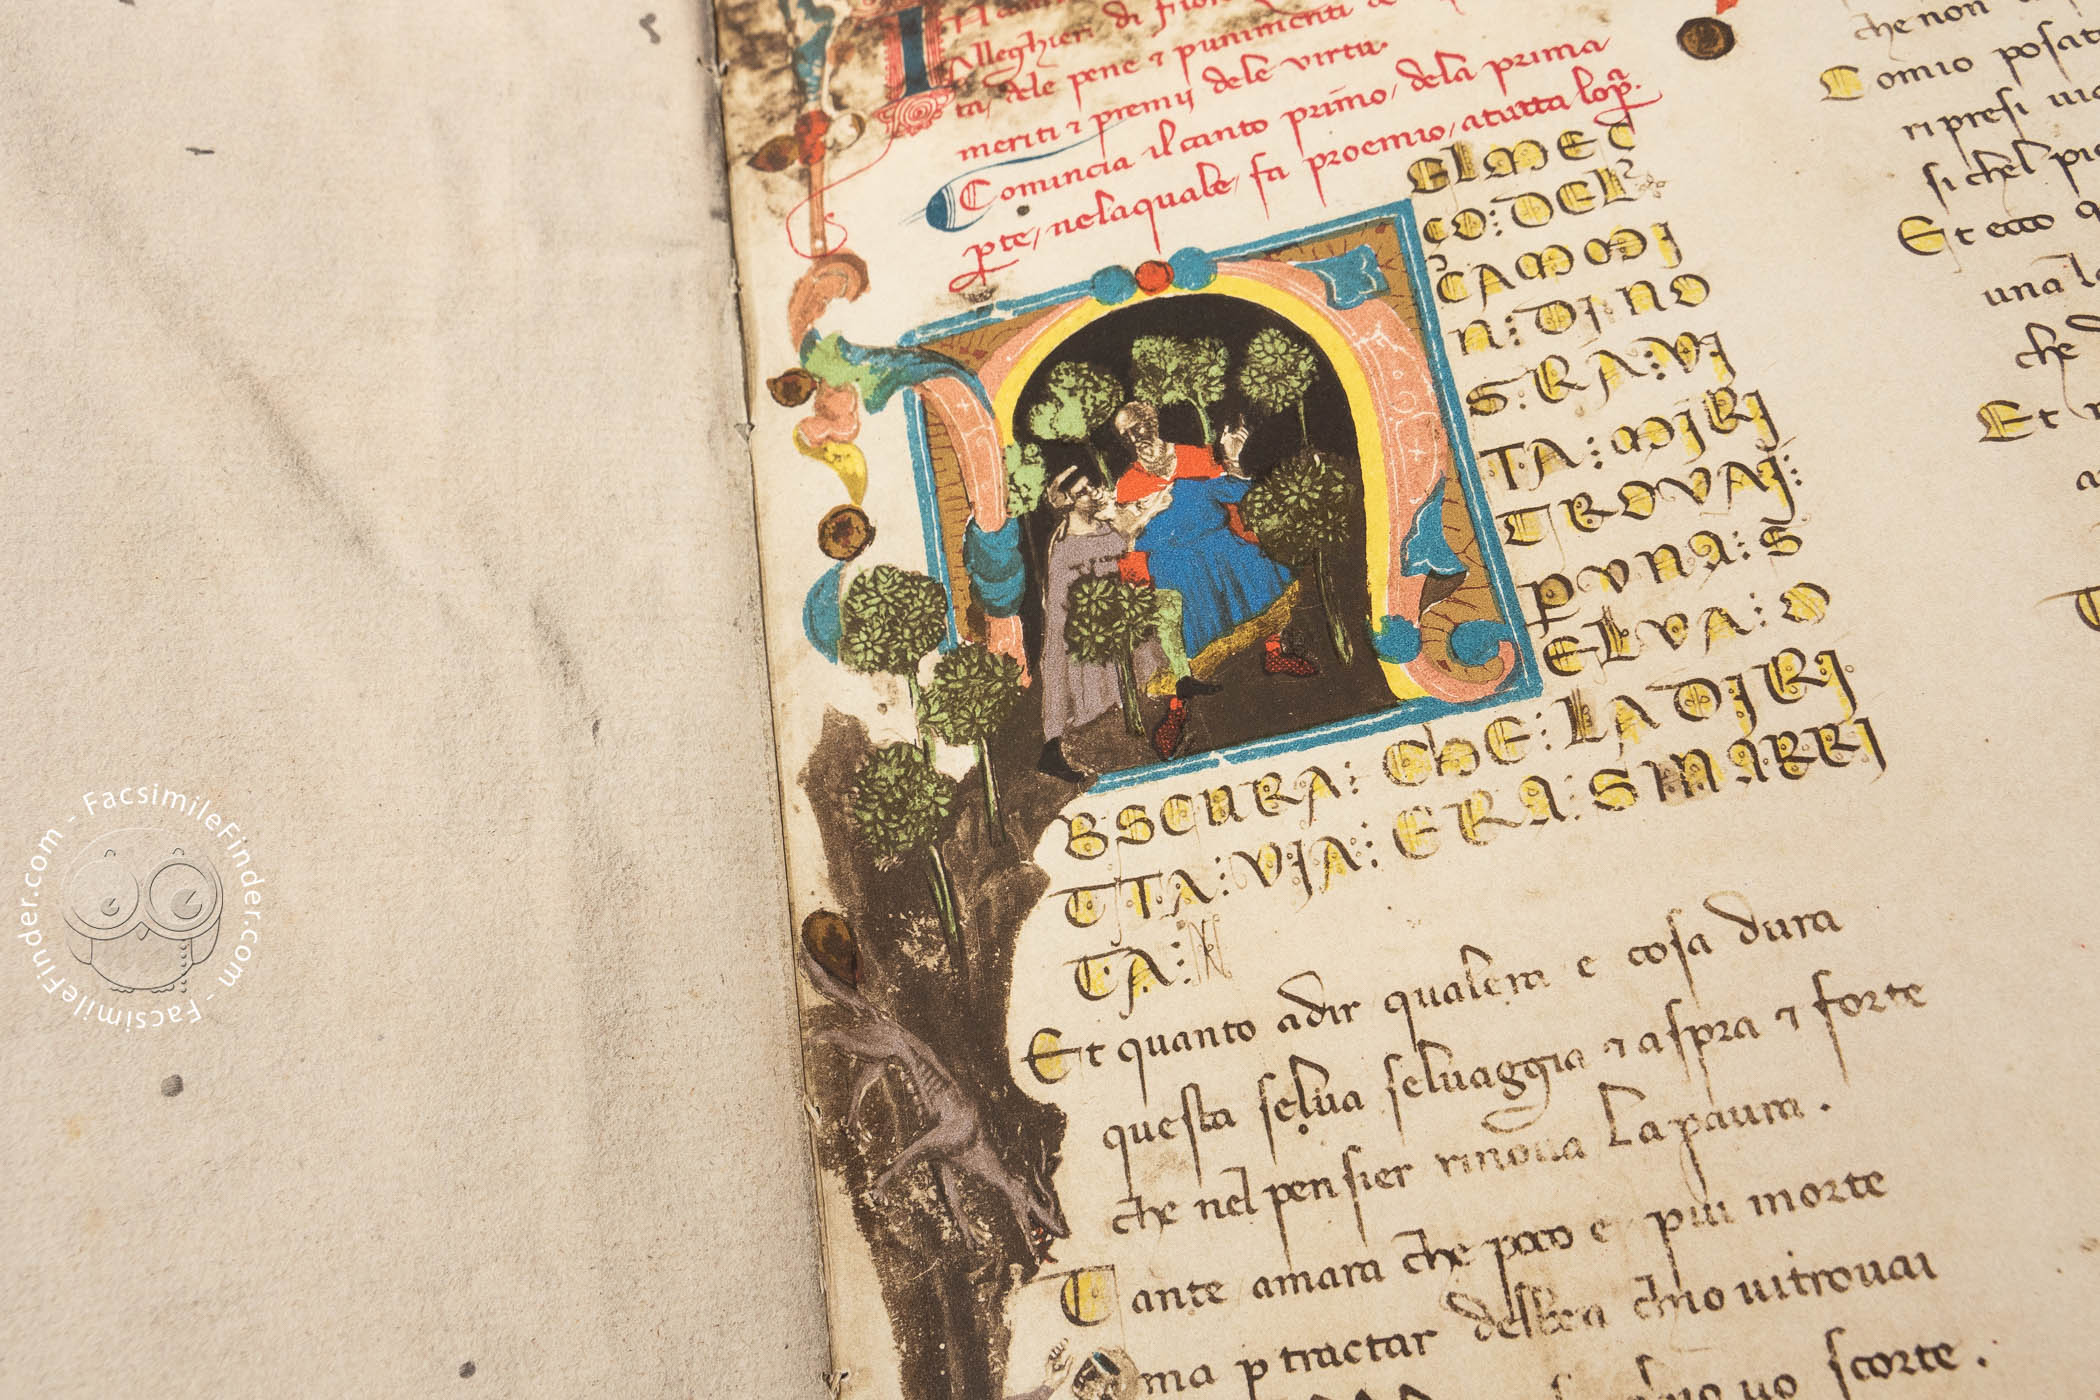 Alleghieri di fior
ta, dele pene ⁊ punimenti de
meriti ⁊ premij dele virtu.
Comincia il canto primo, dela prima
p̄te, nelaquale, fa proemio, atutta lop̄a.
ELMEÇ
ÇO:DEL
CAMMI
N:DI NO
S:RA:VI
TA:MIRI
TROVAI:
PVNA:S
ELVA:O
BSCURA: CHE: LADIRI
TTA:VIA: ERA: SMARRI
TA:
Et quanto adir qualera e cosa dura
questa selua seluaggia ⁊ aspra ⁊ forte
che nel pensier rinoua la paura.
Tante amara che poco e piu morte
ma p tractar delben chio uitrouai
scorte.
che non
Como posat
ripresi uia
si chel pie
Et ecco
una
che
Et
FacsimileFinder.com - FacsimileFinder.com - FacsimileFinder.com